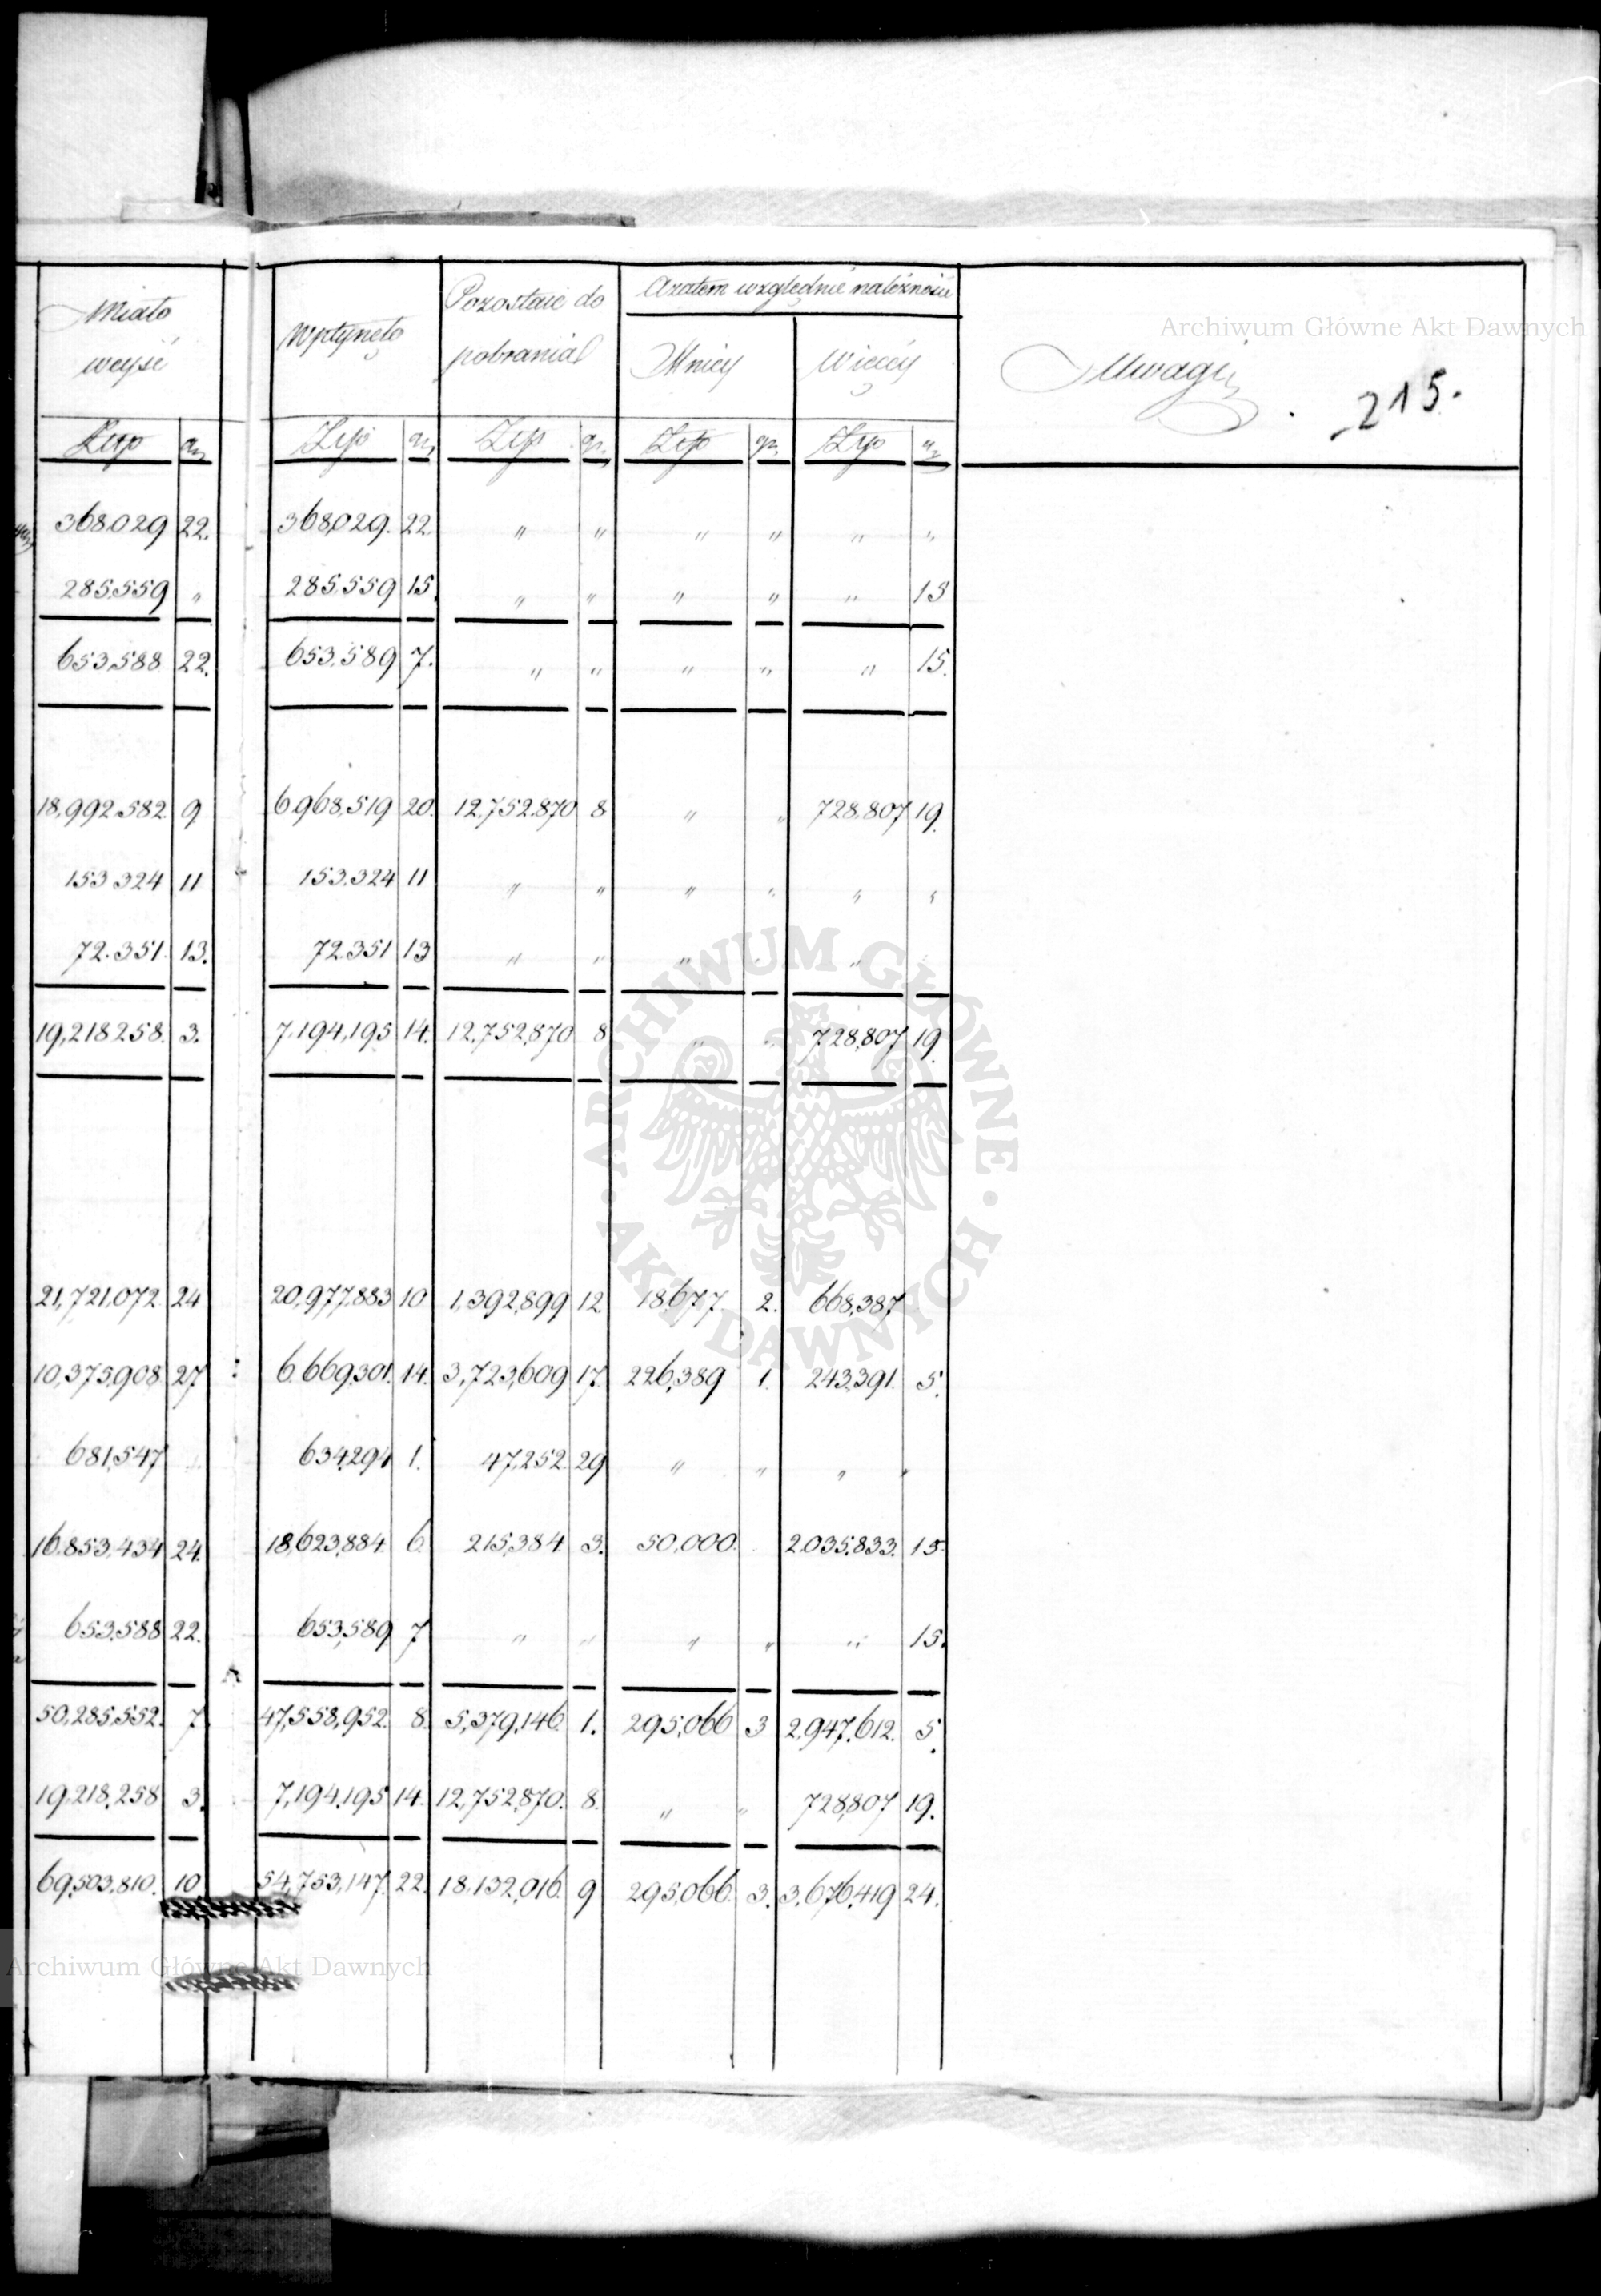 Miało wejść | Wpłynęło | Pozostaie do pobrania | A zatem względnie należności | Uwagi
Mniey | Więcéy
215.
Złtp | gr | Złtp | gr | Złtp | gr | Złtp | gr | Złtp | gr
368,029 | 22. | 368,029. | 22. | " | " | " | " | " | "
285,559 | " | 285,559 | 15. | " | " | " | " | " | 15
653,588 | 22. | 653,589 | 7. | " | " | " | " | " | 15.
18,992,582. | 9 | 6,968,519 | 20. | 12,752,870 | 8 | " | " | 728,807 | 19.
153 324 | 11 | 153,324 | 11 | " | " | " | " | " | "
72.351. | 13. | 72,351 | 13 | " | " | " | " | "
19,218 258. | 3. | 7,194,195 | 14. | 12,752,870 | 8 | " | " | 728,807 | 19.
21,721,072. | 24 | 20,977,883 | 10 | 1,392,899 | 12. | 18,677. | 2. | 668,387
10,375,908 | 27 | 6,669,301. | 14. | 3,723,609 | 17. | 226,389 | 1. | 243,391. | 5.
681,547 | 634,294 | 1. | 47,252 | 29 | " | " | " | "
16,853,434 | 24. | 18,623,884. | 6. | 215,384 | 3. | 50,000. | 2,035,833. | 15.
653,588 | 22. | 653,589 | 7 | " | " | " | " | " | 15.
50,285,552. | 7 | 47,558,952. | 8. | 5,379,146. | 1. | 295,066 | 3 | 2,947,612. | 5.
19,218,258 | 3. | 7,194,195 | 14. | 12,752,870. | 8. | " | " | 728,807 | 19.
69,503,810. | 10 | 54,753,147. | 22. | 18,132,016. | 9 | 295,066. | 3. | 3,676,419 | 24.
Archiwum Główne Akt Dawnych
ARCHIWUM GŁÓWNE · AKT DAWNYCH ·
Archiwum Główne Akt Dawnych